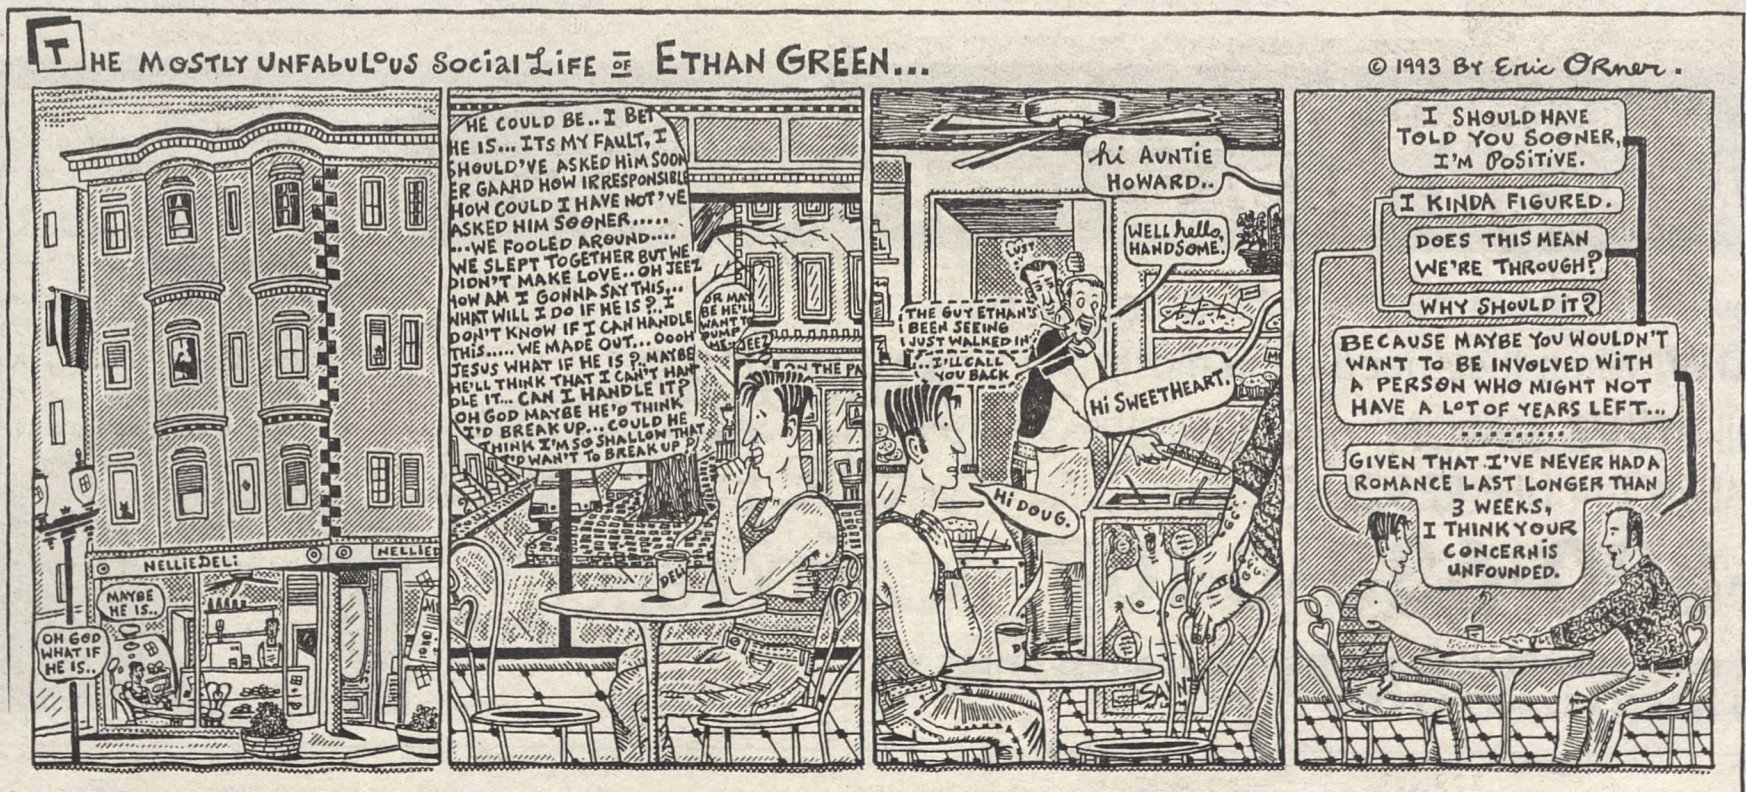 THE MOSTLY UNFABULOUS SOCIAL LIFE OF ETHAN GREEN...
© 1993 BY Eric ORner.
NELLIEDELI
NELLIED
MAYBE
HE IS..
OH GOD
WHAT IF
HE IS..
HE COULD BE.. I BET
HE IS... ITS MY FAULT, I
SHOULD'VE ASKED HIM SOON
ER GAAHD HOW IRRESPONSIBLE
HOW COULD I HAVE NOT'VE
ASKED HIM SOONER.....
...WE FOOLED AROUND....
WE SLEPT TOGETHER BUT WE
DIDN'T MAKE LOVE.. OH JEEZ
HOW AM I GONNA SAY THIS...
WHAT WILL I DO IF HE IS?.. I
DON'T KNOW IF I CAN HANDLE
THIS..... WE MADE OUT... OOOH
JESUS WHAT IF HE IS? MAYBE
HE'LL THINK THAT I CAN'T HAN
DLE IT... CAN I HANDLE IT?
OH GOD MAYBE HE'D THINK
I'D BREAK UP... COULD HE
THINK I'M SO SHALLOW THAT
I'D WANT TO BREAK UP?
OR MAY
BE HE'LL
WANT TO
DUMP
ME?
JEEZ
ON THE PA
DELI
hi AUNTIE
HOWARD..
WELL hello,
HANDSOME.
LUST
THE GUY ETHAN'S
BEEN SEEING
JUST WALKED IN
I'LL CALL
YOU BACK
Hi SWEETHEART.
Hi DOUG.
I SHOULD HAVE
TOLD YOU SOONER,
I'M POSITIVE.
I KINDA FIGURED.
DOES THIS MEAN
WE'RE THROUGH?
WHY SHOULD IT?
BECAUSE MAYBE YOU WOULDN'T
WANT TO BE INVOLVED WITH
A PERSON WHO MIGHT NOT
HAVE A LOT OF YEARS LEFT...
GIVEN THAT I'VE NEVER HAD A
ROMANCE LAST LONGER THAN
3 WEEKS,
I THINK YOUR
CONCERN IS
UNFOUNDED.